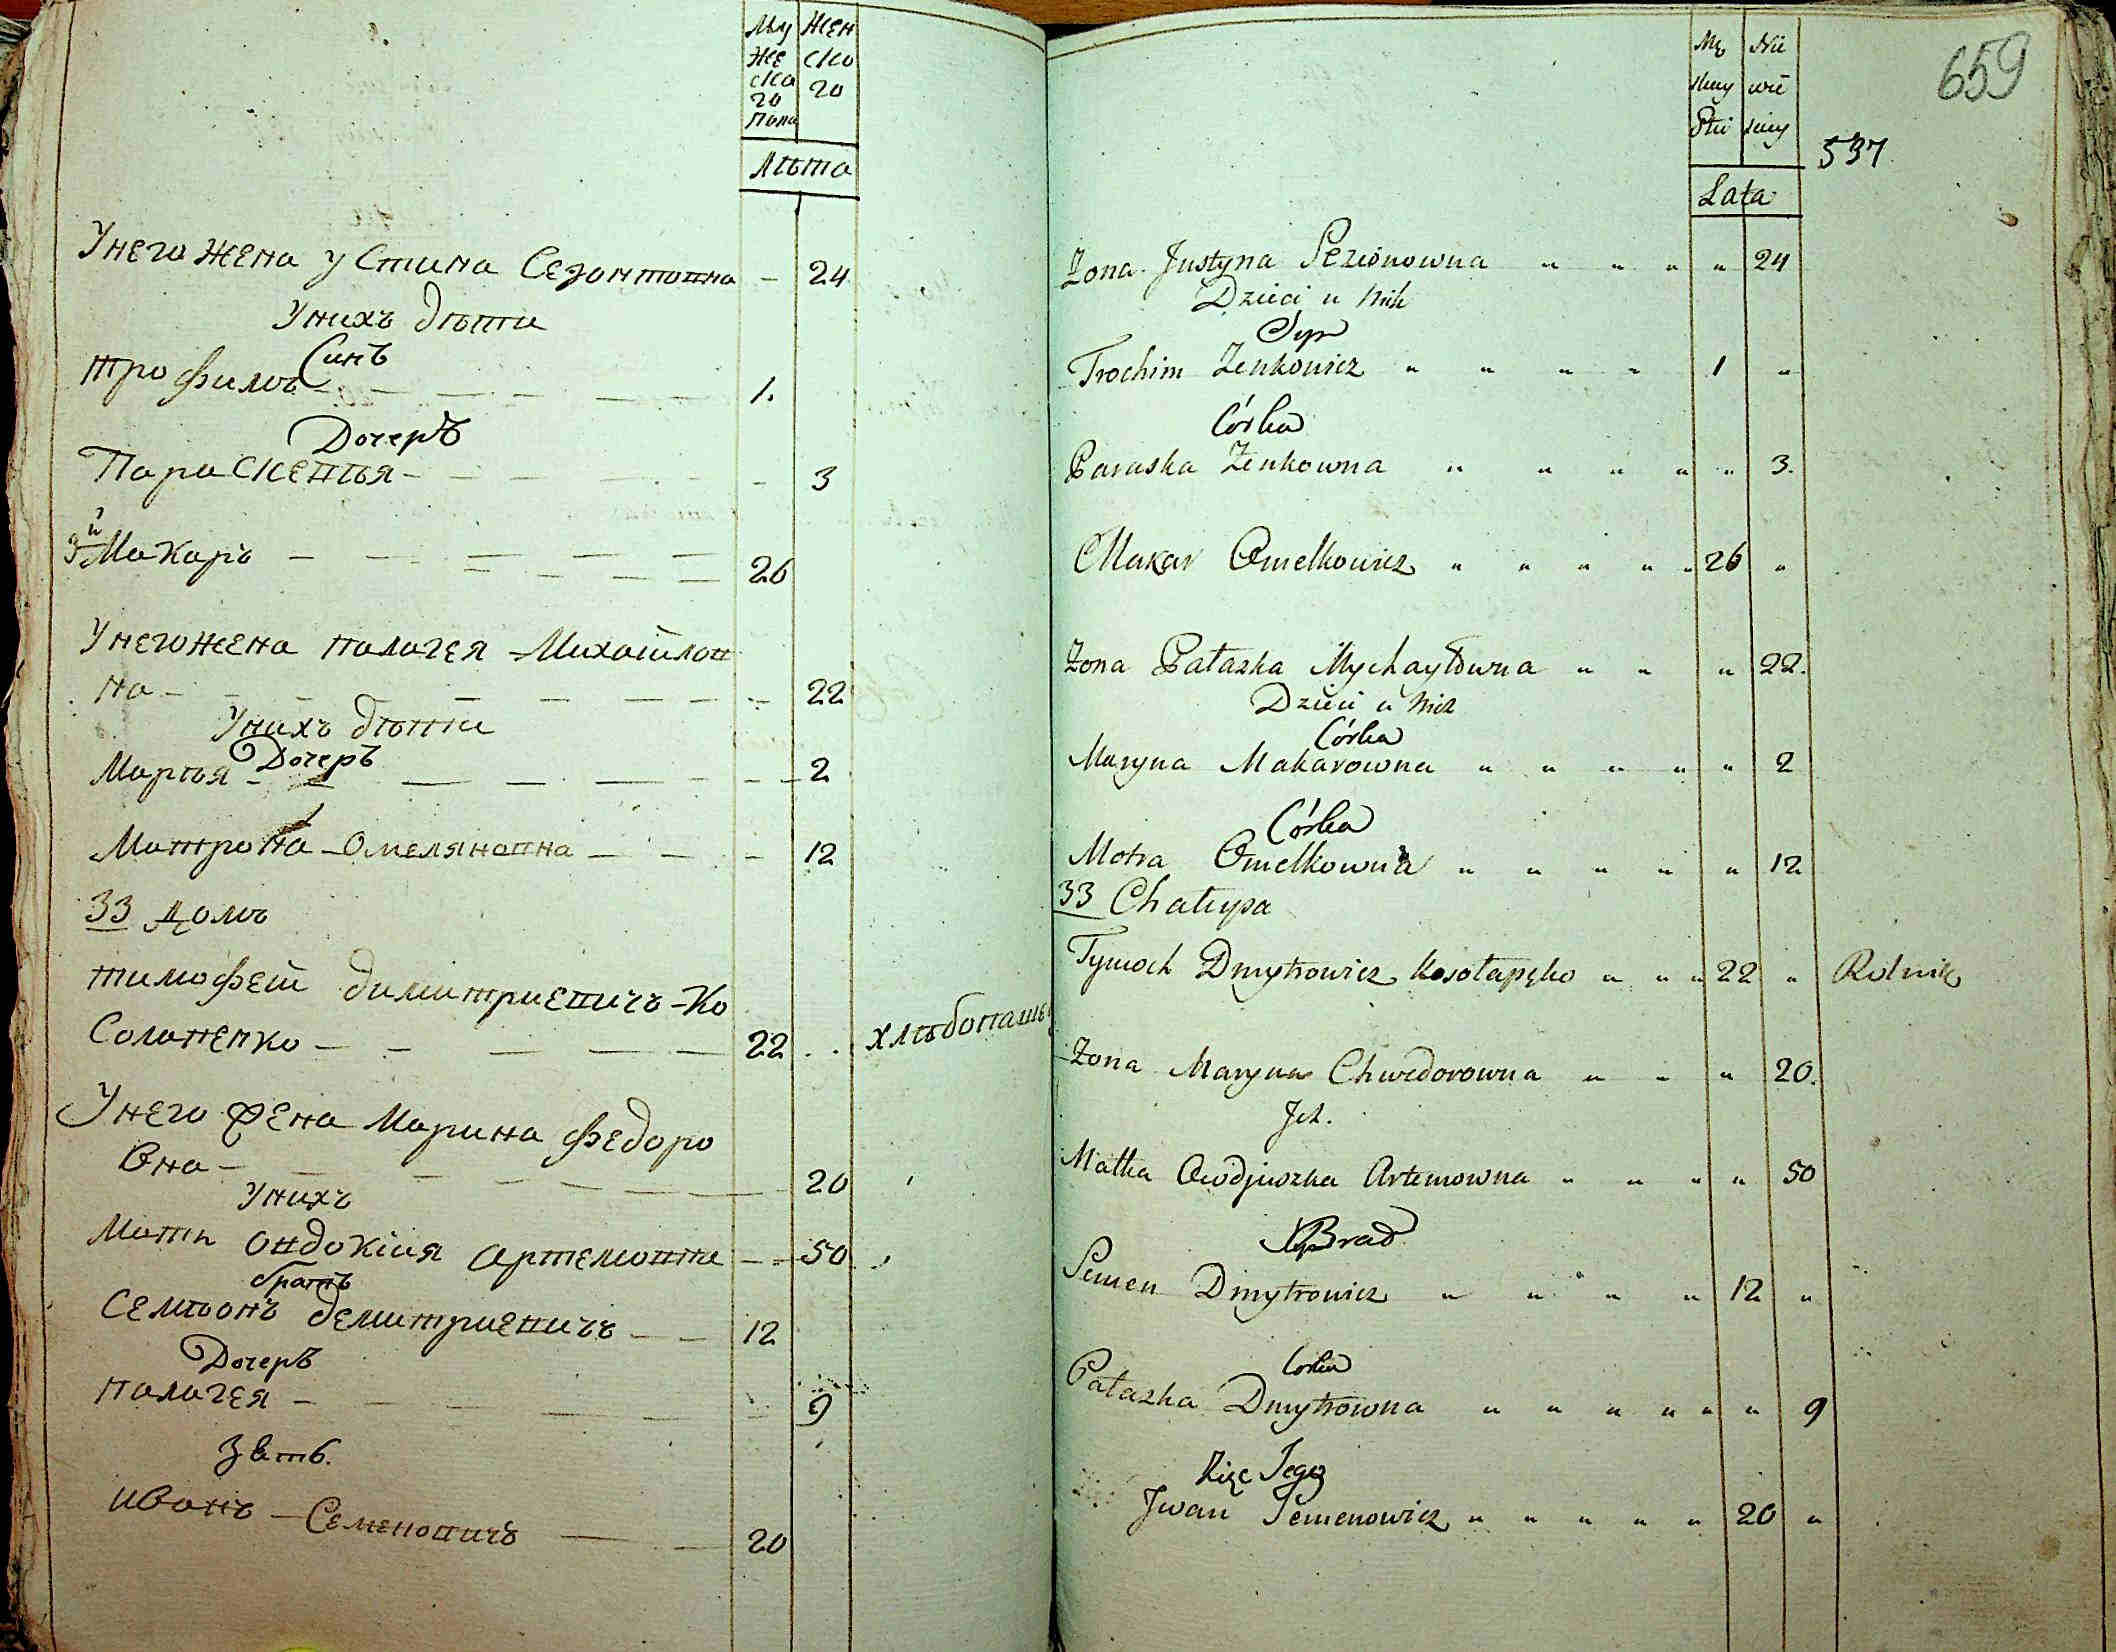 Му Жен
же ско
ска го
го
пола
Лѣта
У него жена устина Сезонтовна — 24
У нихъ дѣти
Синъ
трофимъ — — — 1.
Дочеръ
Параскевья — — — 3
3й Макаръ — — — 26
У него жена палагея Михайлов
на — — — 22
У нихъ дѣти
Дочеръ
Марья — — — 2
Матрона Омеляновна — — — 12
33 домъ
тимофей димитриевичъ Ко
солапенко — — — 22 хлѣбопашъ
У него жена Марина федоро
вна — — — 20
У нихъ
Мать овдокия артемовна — — 50
братъ
семѣонъ демитриевичъ — — 12
Дочеръ
палагея — — — 9
Зять.
иванъ Семеновичъ — — 20
659
Mę Nie
skiey wie
Płci sciey
537
Lata
Żona Justyna Sezionowna " " " " 24
Dzieci u nich
Syn
Trochim Zenkowicz " " " " 1 "
Córka
Paraska Zenkowna " " " " " 3.
Makar Omelkowicz " " " " " 26 "
Żona Pałazka Mychayłowna " " " 22.
Dzieci u nich
Córka
Maryna Makarowna " " " " " 2
Córka
Motra Omelkowna " " " " " 12
33 Chałupa
Tymoch Dmytrowicz Kosołapęko " " " 22 " Rolnik
Żona Maryna Chwedorowna " " " 20.
Ich.
Matka Owdjuszka Artemowna " " " " 50
Brad
Semen Dmytrowicz " " " " 12 "
Corka
Pałazka Dmytrowna " " " " " " 9
Zięc Jego
Jwan Semenowicz " " " " " 20 "